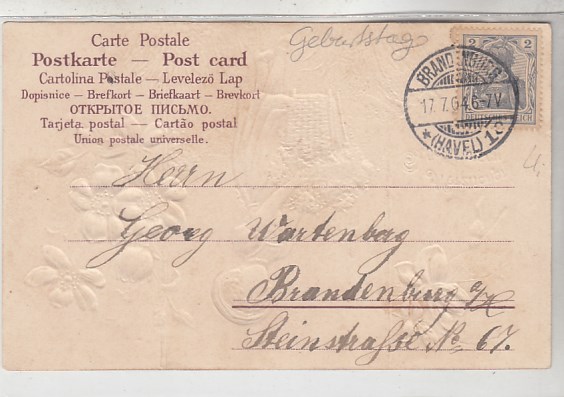 Carte Postale
Geburtstag
Postkarte — Post card
Cartolina Postale — Levelező Lap
Dopisnice — Brefkort — Briefkaart — Brevkort
ОТКРЫТОЕ ПИСЬМО.
Tarjeta postal — Cartão postal
Union postale universelle.
2 2
DEUTSCHES REICH
BRANDENBURG
17.7.04. 6-7V
* (HAVEL) 1
4,-
Herrn
Georg Wartenbag
Brandenburg a/H
Steinstraße No. 67.